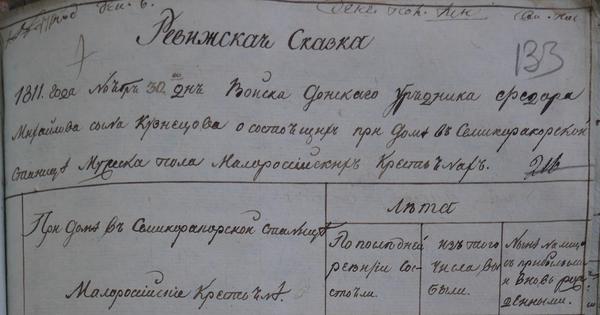 Ревижская Сказка
133
1811. года Ноября 30. дня Войска Донскаго Урядника Федора
Михайлова сына Кузнецова о состоящих при доме в Семикаракорской
Станице Мужеска пола Малоросийских Крестьянах.
При доме в Семикаракорской станице
Малоросийские Крестьяне.
лета
По последней
ревизии сос-
тояли.
из того
числа вы
были.
Ныне на лицо
с прибылыми
и вновь рож
денными.